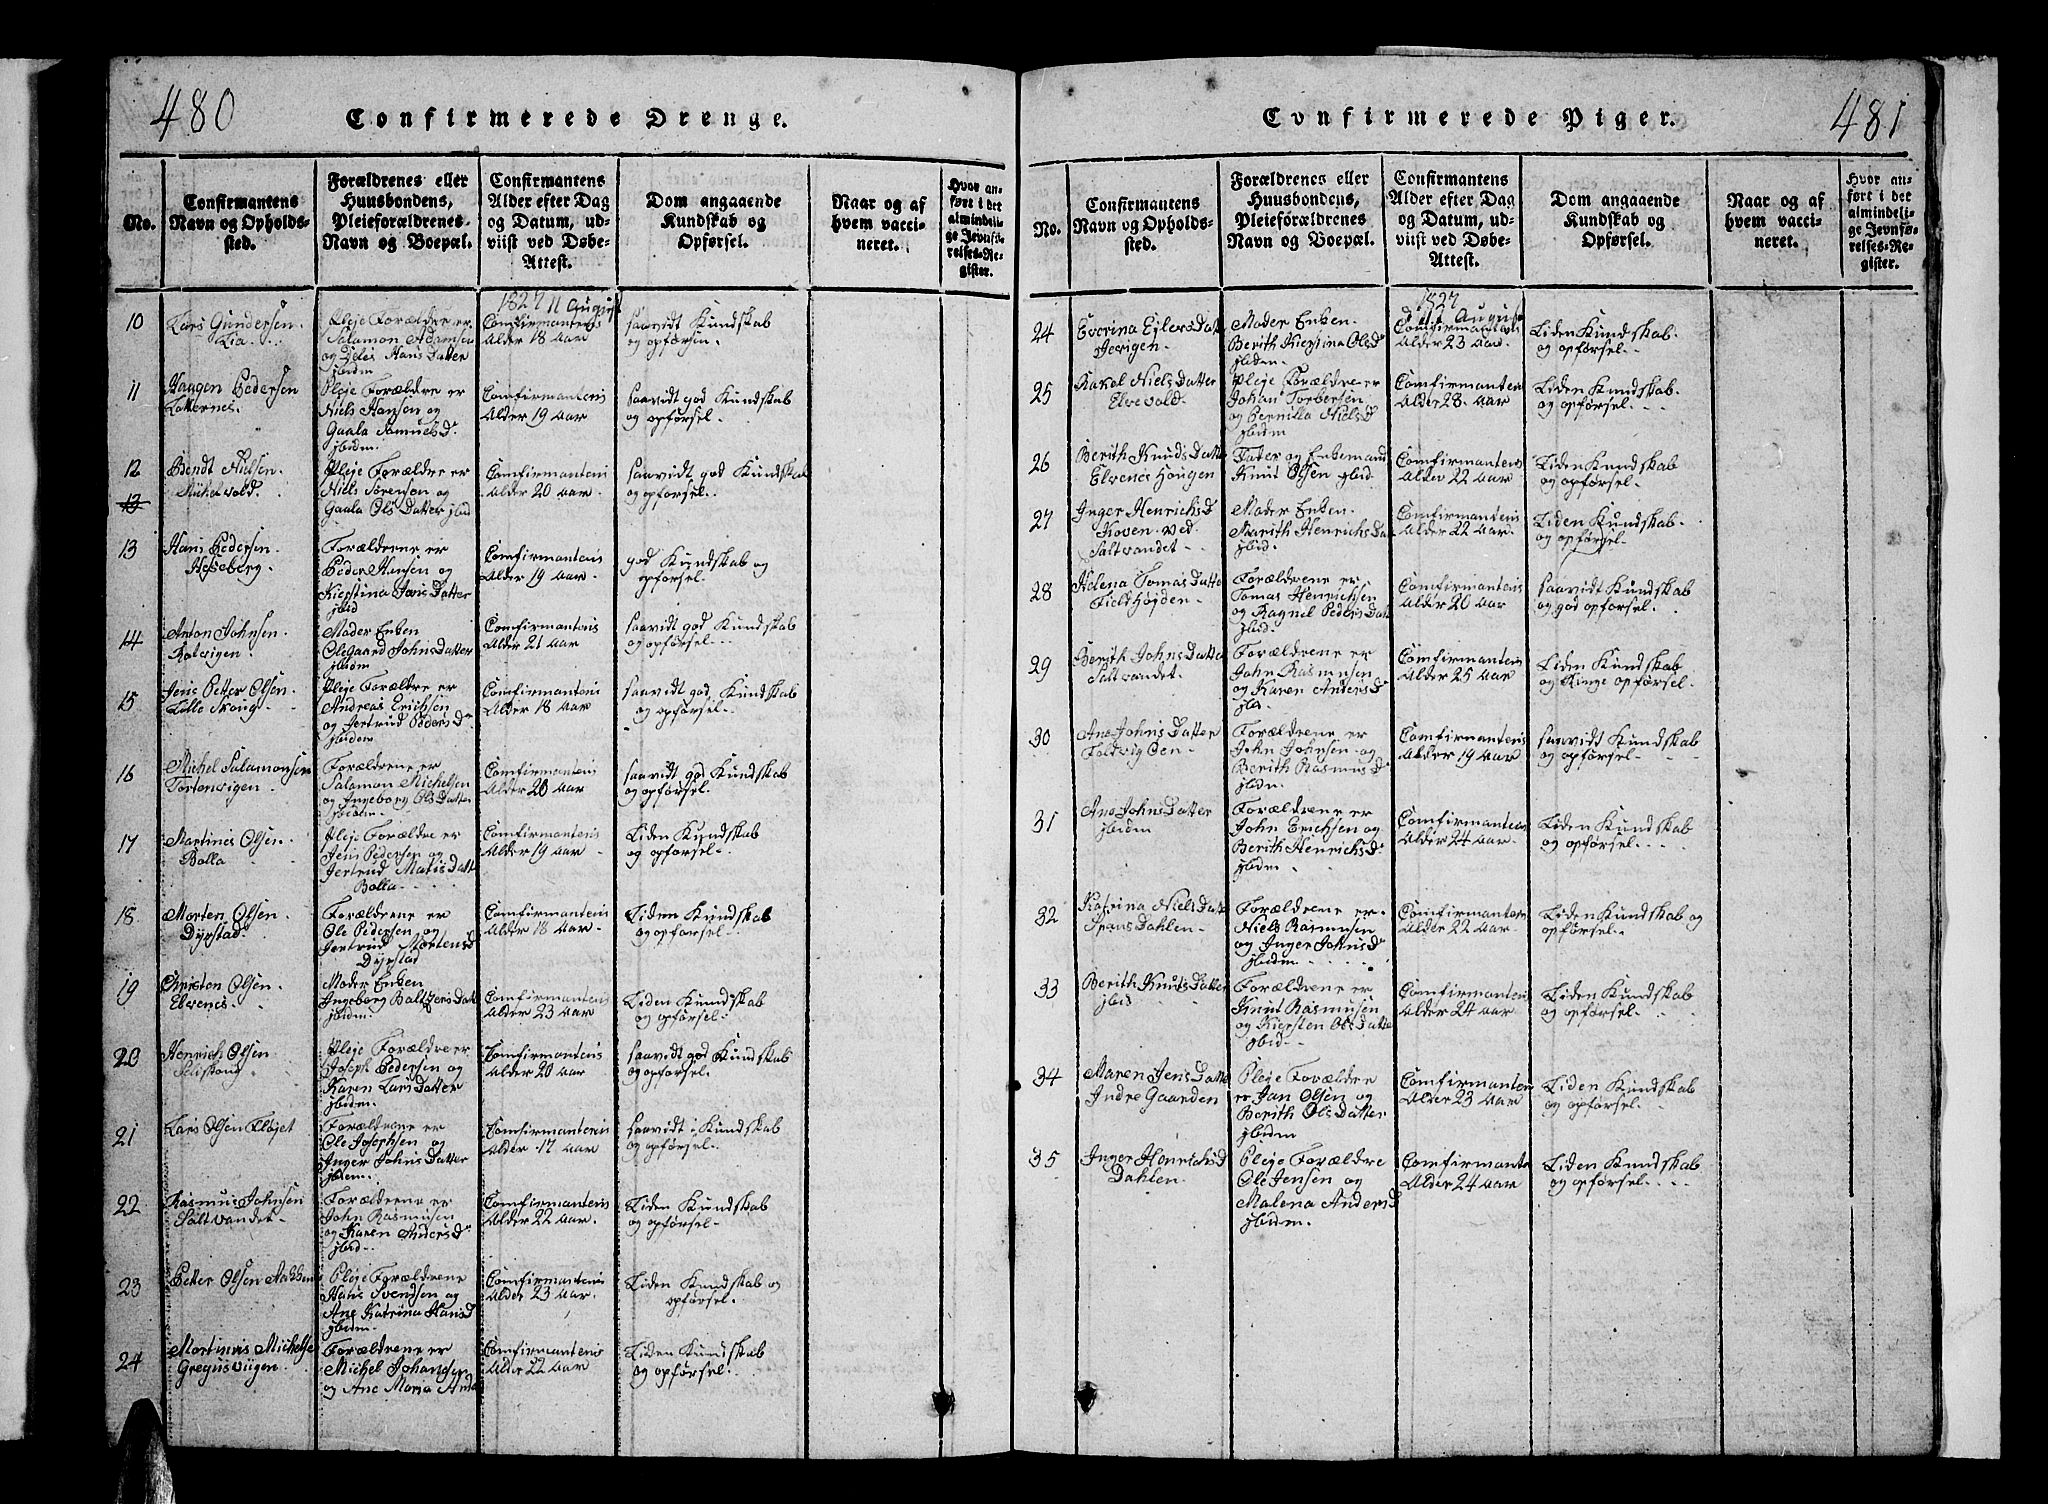 480
Confirmerede Drenge.
No.
Confirmantens
Navn og Opholds-
sted.
Forældrenes eller
Huusbondens,
Pleieforældrenes
Navn og Boepæl.
Confirmantens
Alder efter Dag
og Datum, ud-
viist ved Døbe-
Attest.
Dom angaaende
Kundskab og
Opførsel.
Naar og af
hvem vacci-
neret.
Hvor an-
ført i det
almindeli-
ge Jevnfø-
relses-Re-
gister.
1827 11 August
10
Lars Gundersen
Lia
Pleje Forældre er
Salamon Adamsen
og Hans Datter
jbidem
Comfirmantens
Alder 18 Aar
saavidt Kundskab
og opførsen
11
Haagen Pedersen
Løkternes
Pleje Forældre er
Niels Hansen og
Gaala Samuels D.
jbidem
Comfirmantens
Alder 19 Aar
saavidt god Kundskab
og opførsel
12
13
Bendt Nielsen
Mikelvold
Pleje Forældre er
Niels Sørensen og
Gaala Ols Datter jbid
Comfirmantens
Alder 20 Aar
saavidt god Kundskab
og opførsel
13
Hans Pedersen
Hesseberg
Forældrene er
Peder Hansen og
Kierstina Jans Datter
jbid
Comfirmantens
Alder 19 Aar
god Kundskab og
opførsel
14
Anton Johnsen
Rotvigen
Moder Enken
Olegaard Johns Datter
jbidm
Comfirmantens
Alder 21 Aar
saavidt god Kundskab
og opførsel
15
Jens Petter Olsen
Lille Skoug
Pleje Forældre er
Andreas Erichsen
og Jertrud Peders D
jbidem
Comfirmantens
Alder 18 Aar
saavidt god Kundskab
og opførsel
16
Michel Salamonsen
Tortenvigen
Forældrene er
Salamon Michelsen
og Ingeborg Ols Datter
jbidem
Comfirmantens
Alder 20 Aar
saavidt god Kundskab
og opførsel
17
Martines Olsen
Bolla
Pleje Forældre er
Jens Pedersen og
Jertrud Matis Datt
Bolla
Comfirmantens
Alder 19 Aar
Liden Kundskab
og opførsel
18
Morten Olsen
Dyrstad
Forældrene er
Ole Pedersen og
Jertrud Mortens D
Dyrstad
Comfirmantens
Alder 18 Aar
Liden Kundskab
og opførsel
19
Christen Olsen
Elvenes
Moder Enken
Ingeborg Baltzers Datt
jbidm
Comfirmantens
Alder 23 Aar
Liden Kundskab
og opførsel
20
Henrich Olsen
Seliskoug
Pleje Forældre er
Joseph Pedersen og
Karen Lars Datter
jbidem
Comfirmantens
Alder 20 Aar
saavidt god Kundskab
og opførsel
21
Lars Olsen Fløjet
Forældrene er
Ole Josephsen og
Inger Johns Datter
jbidem
Comfirmantens
Alder 17 Aar
saavidt Kundskab
og opførsel
22
Rasmus Johnsen
Saltvandet
Forældrene er
John Rasmusen
og Karen Anders D
jbid
Comfirmantens
Alder 22 Aar
Liden Kundskab
og opførsel
23
Petter Olsen
Pleje Forældrene
Hans Svendsen og
Ane Katrina Hans D
jbidem
Comfirmantens
Alder 23 Aar
Liden Kundskab og
opførsel
24
Mortinus Michelse
Gregusviigen
Forældrene er
Michel Johansen
og Ane Maria And
Comfirmantens
Alder 22 Aar
Liden Kundskab
og opførsel
481
Confirmerede Piger.
No.
Confirmantens
Navn og Opholds-
sted.
Forældrenes eller
Huusbondens,
Pleieforældrenes
Navn og Boepæl.
Confirmantens
Alder efter Dag
og Datum, ud-
viist ved Døbe-
Attest.
Dom angaaende
Kundskab og
Opførsel.
Naar og af
hvem vacci-
neret.
Hvor an-
ført i det
almindeli-
ge Jevnfø-
relses-Re-
gister.
1827
d 11 August
24
Everina Ejlers Datt
Jervigen
Moder Enken
Berith Kierstina Ols D
jbidem
Comfirmantens
Alder 23 Aar
Liden Kundskab
og opførsel
25
Rakel Niels Datter
Elvevold
Pleje Forældre er
Johan Torbersen
og Pernilla Niels D
jbidem
Comfirmantens
Alder 28 Aar
Liden Kundskab
og opførsel
26
Berith Knuds Datte
Elvenes Hougen
Fater og Enkemand
Knut Olsen jbid
Comfirmantens
Alder 22 Aar
Liden Kundskab
og opførsel
27
Inger Henrichs D
Koven ved
Saltvandet
Moder Enken
Marith Henrichs Da
jbid
Comfirmantens
Alder 22 Aar
Liden Kundskab
og opførsel
28
Helena Tomas Datte
Field Højden
Forældrene er
Tomas Henrichsen
og Ragnel Peders Datt
jbid
Comfirmantens
Alder 20 Aar
saavidt Kundskab
og god opførsel
29
Berith Johns Datter
Saltvandet
Forældrene er
John Rasmusen
og Karen Anders D
jbid
Comfirmantens
Alder 25 Aar
Liden Kundskab
og Ringe opførsel
30
Ane Johns Datter
Foldvig Øen
Forældrene er
John Johnsen og
Berith Rasmus D
jbidm
Comfirmantens
Alder 19 Aar
saavidt Kundskab
og opførsel
31
Ane Johns Datter
jbidm
Forældrene er
John Erichsen og
Berith Henrichs D
jbidem
Comfirmantens
Alder 24 Aar
Liden Kundskab
og opførsel
32
Katrina Niels Datte
Spans Dahlen
Forældrene er
Niels Rasmusen
og Inger Johns D
jbidm
Comfirmantens
Alder 22 Aar
Liden Kundskab og
opførsel
33
Berith Knuds Datter
jbid
Forældrene er
Knut Rasmusen
og Kiersten Ols Datte
jbid
Comfirmantens
Alder 24 Aar
Liden Kundskab
og opførsel
34
Maren Jens Datte
Indre Gaarden
Pleje Forældre
er Jan Olsen og
Berith Ols Datter
jbidem
Comfirmanten
Alder 23 Aar
Liden Kundskab
og opførsel
35
Inger Henrichs D
Dahlen
Pleje Forældre
Ole Jensen og
Malena Anders D
jbidem
Comfirmante
Alder 24 Aar
Liden Kundskab
og opførsel